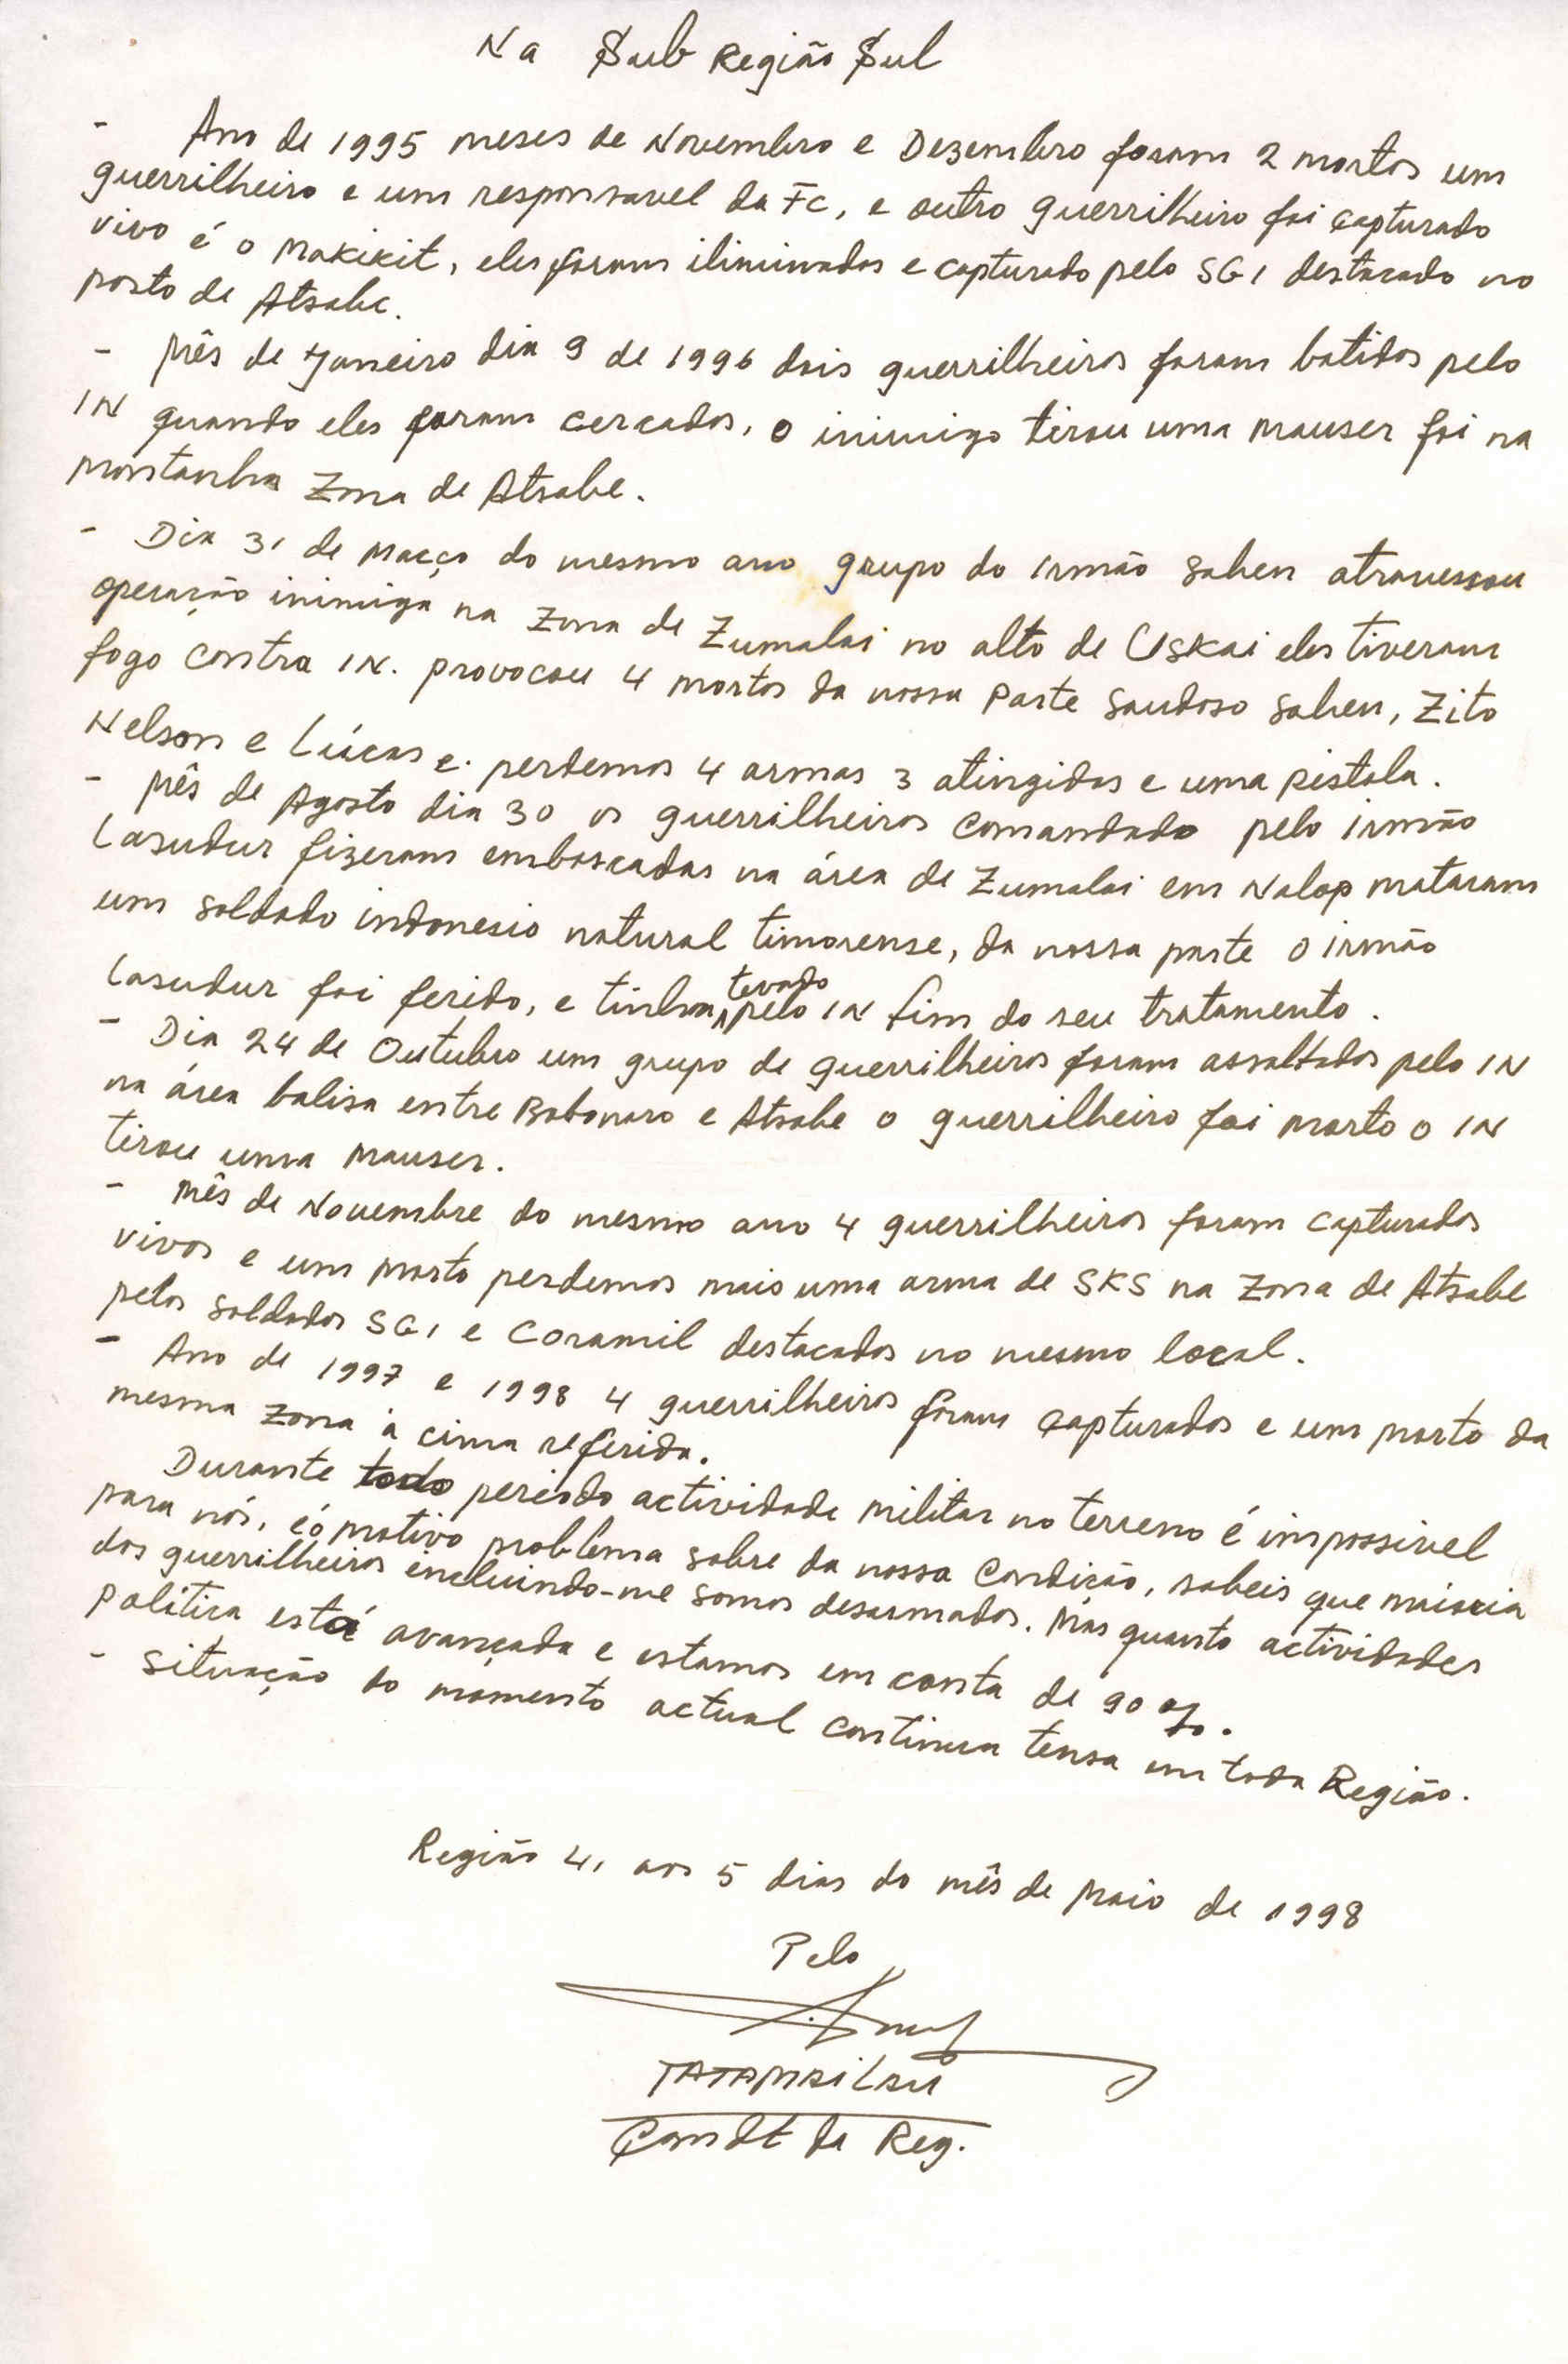 Na Sub Região Sul
- Ano de 1995 meses de Novembro e Dezembro foram 2 mortos um
guerrilheiro e um responsavel da FC, e outro guerrilheiro foi capturado
vivo é o Makikit, eles foram iliminados e capturado pelo SGI destacado no
posto de Atsabe.
- Mês de Janeiro dia 9 de 1996 dois guerrilheiros foram batidos pelo
IN quando eles foram cercados, o inimigo tirou uma mauser foi na
montanha Zona de Atsabe.
- Dia 31 de Março do mesmo ano grupo do irmão Saben atravessou
operação inimiga na Zona de Zumalai no alto de Uskai eles tiveram
fogo contra IN. provocou 4 mortos da nossa parte saudoso Saben, Zito
Nelson e Lúcas e. perdemos 4 armas 3 atingidos e uma pistola.
- Mês de Agosto dia 30 os guerrilheiros comandado pelo irmão
Lasudur fizeram emboscadas na área de Zumalai em Nalop mataram
um soldado indonesio natural timorense, da nossa parte o irmão
Lasudur foi ferido, e tinha levado pelo IN fim do seu tratamento.
- Dia 24 de Outubro um grupo de guerrilheiros foram assaltados pelo IN
na área balisa entre Bobonaro e Atsabe o guerrilheiro foi morto o IN
tirou uma mauser.
- Mês de Novembre do mesmo ano 4 guerrilheiros foram capturados
vivos e um morto perdemos mais uma arma de SKS na Zona de Atsabe
pelos soldados SGI e Coramil destacados no mesmo local.
- Ano de 1997 e 1998 4 guerrilheiros foram capturados e um morto da
mesma zona à cima referida.
Durante todo periodo actividade militar no terreno é impossivel
para nós, é o motivo problema sobre da nossa condição, sabeis que maioria
dos guerrilheiros incluindo-me somos desarmados. Mas quanto actividades
politica está avançada e estamos em conta de 90%.
- Situação do momento actual continua tensa em toda Região.
Região 4, aos 5 dias do mês de Maio de 1998
Pelo
TATAMAILAU
Comdt da Reg.